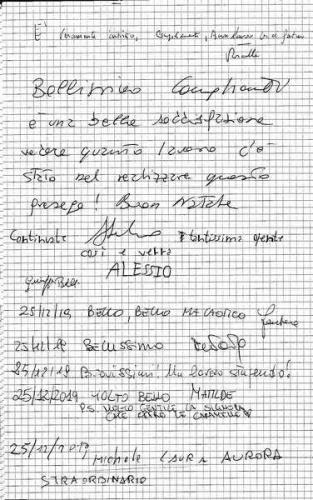 È veramente
Bellissimo Complimenti
è una bella soddisfazione
vedere quanto lavoro c'è
stato nel realizzare questo
presepe! Buon Natale
Continuate
così e verrà tantissima gente
ALESSIO
25/12/19 BELLO, BELLO
25/12/19 BELLISSIMO
25/12/19 Bravissimi! Un lavoro stupendo!
25/12/2019 MOLTO BELLO MATILDE
P.S. MOLTO GENTILE LA SIGNORA
CHE
25/12/2019 Michele LAURA AURORA
STRAORDINARIO